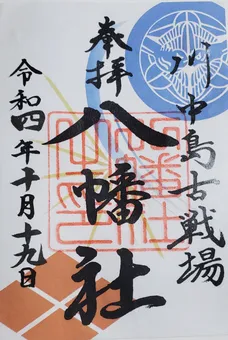 川中島古戦場
奉拝
八幡社
令和四年十月十九日